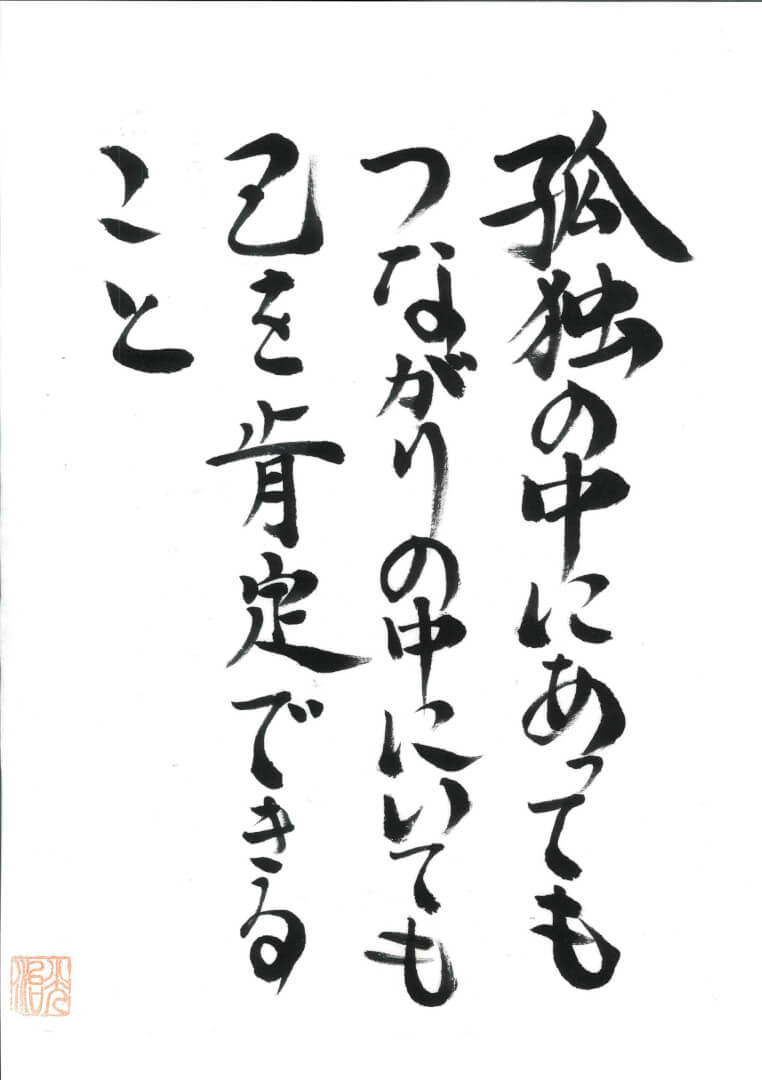 孤独の中にあっても
つながりの中にいても
己を肯定できる
こと